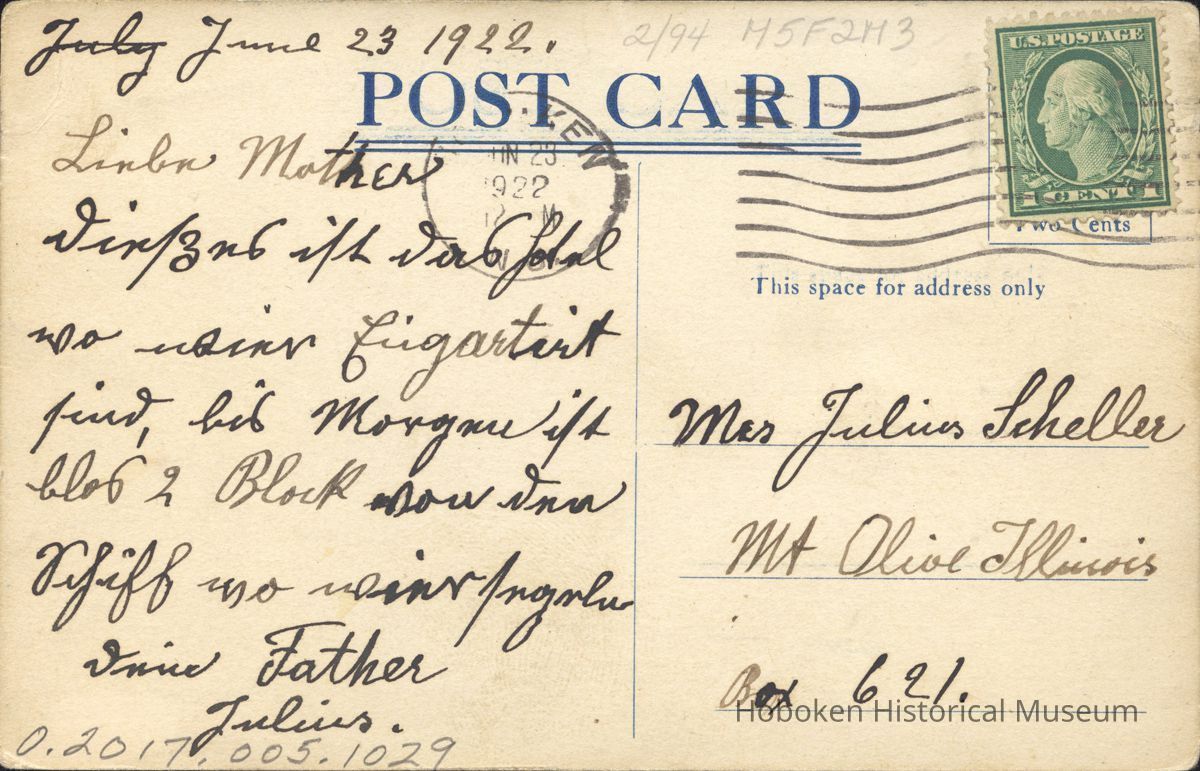 July June 23 1922.
2/94 M5F2M3
POST CARD
U.S.POSTAGE
1 CENT 1
KEN
UN 23
1922
12 M
N
Two Cents
This space for address only
Liebe Mother
dießes ist das Hotel
wo wier Eugartirt
sind, bis Morgen ist
blos 2 Block von den
Schiff wo wier segeln
dein Father
Julius.
Mrs Julius Scheller
Mt Olive Illinois
Box 621.
Hoboken Historical Museum
0.2017.005.1029